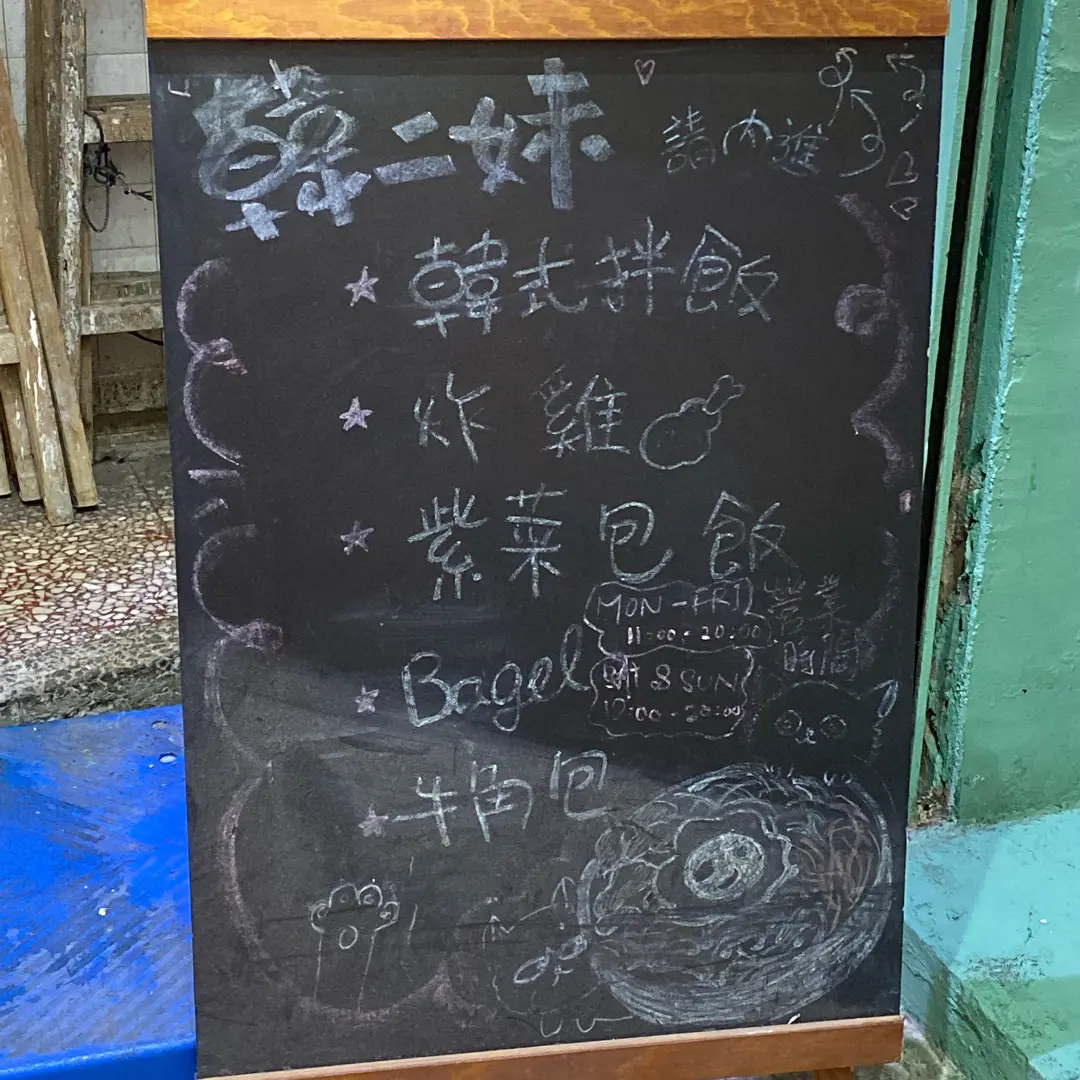 二妹
請內進
韓式拌飯
炸雞
紫菜包飯
營業
時間
MON - FRI
11:00 - 20:00
SAT & SUN
- 20:00
Bagel
牛角包